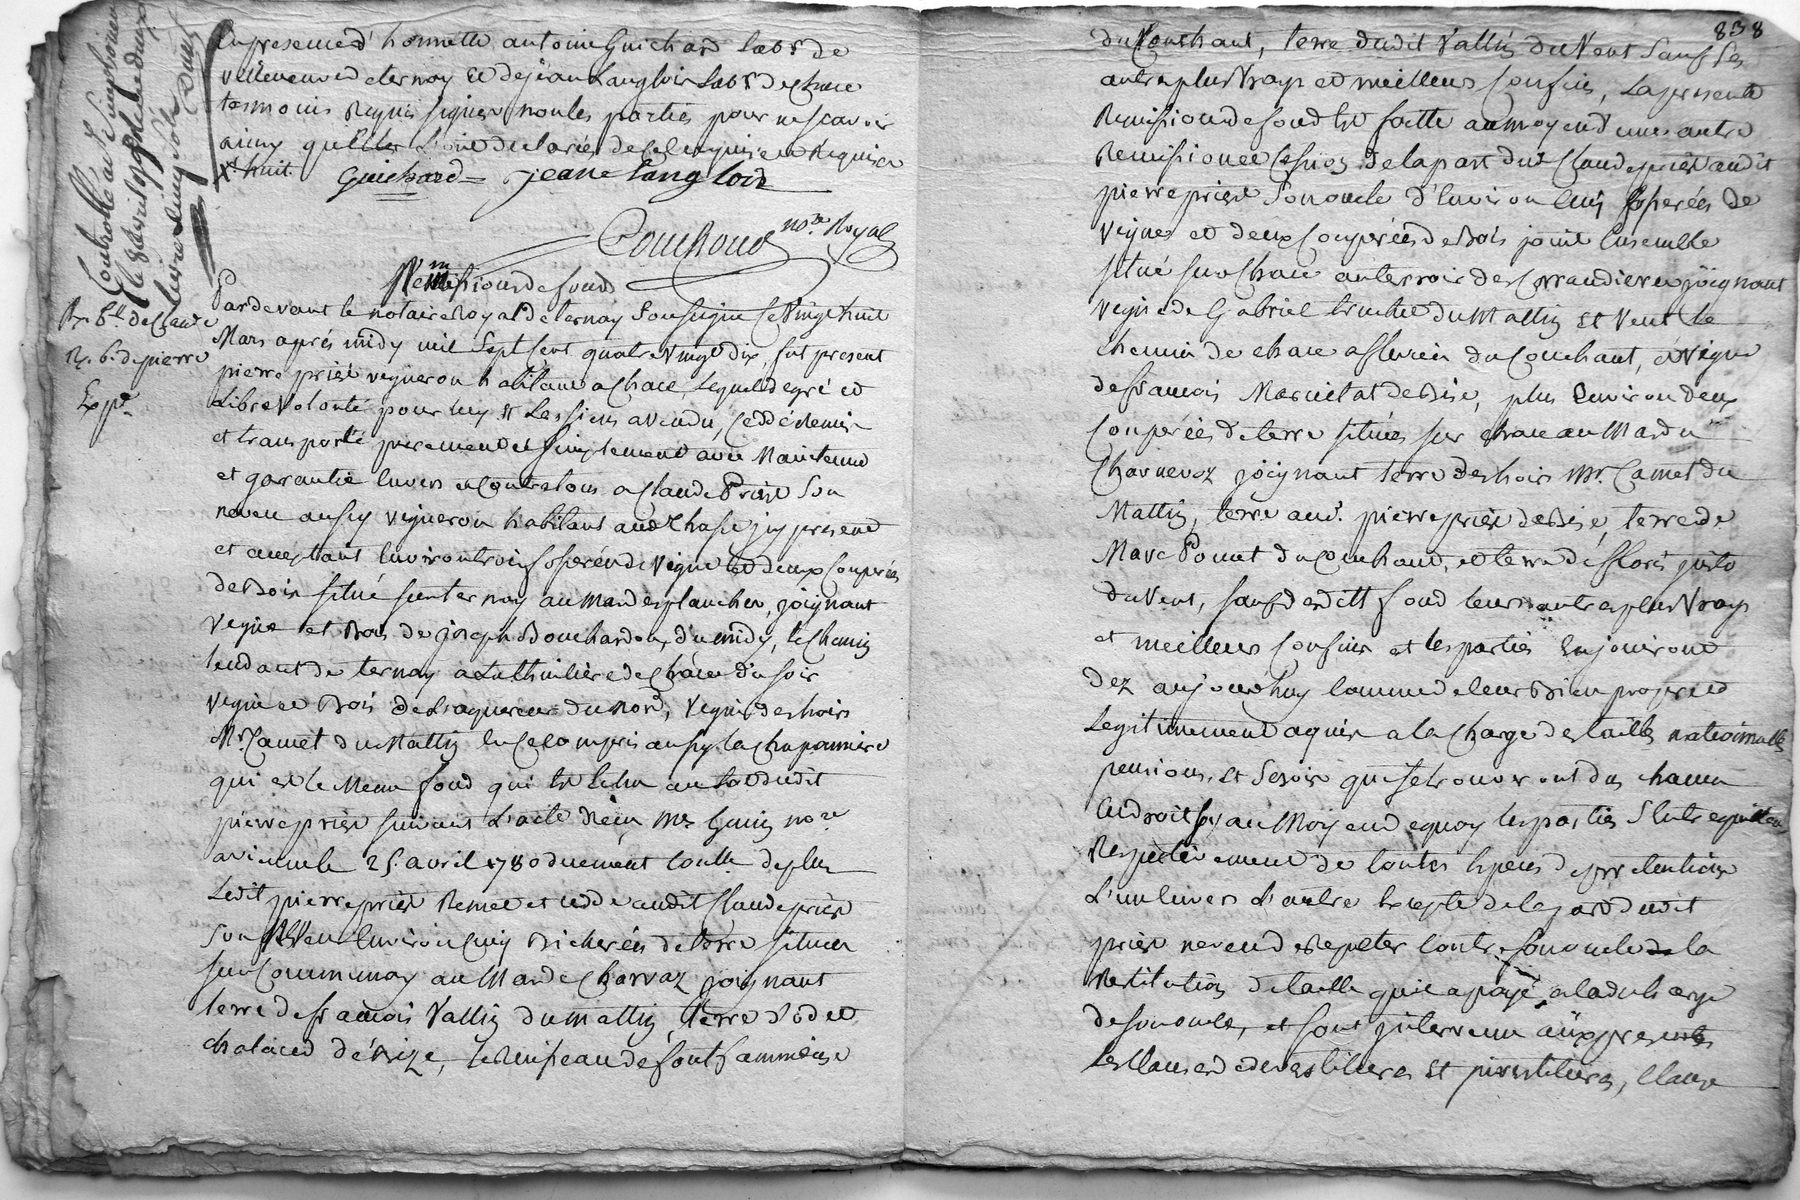 en presence d'honnette antoine Guichard lab.r de
villeneuve de ternay et de jean Langlois lab.r de Chace
temoins Requis signés non les parties pour ne scavoir
ainsy qu'elles l'ont declarés de ce enquises et Requises
x.t huit. Guichard Jean Langloix
Couchoud no.re Royal
Controllé à S.t Simphorien
le 8 avril 1790
Remission de fond
R. 6.s de Claude
R. 6.s de pierre
Exp.é
Pardevant le notaire Royal de ternay Soussigné Ce vingt huit
Mars aprés midy mil Sept Cent quatre vingt dix, fut present
pierre priest vigneron habitant a Chace, Lequel de gré et
Libre volonté pour luy et Les siens a vendu, Ceddé Remis
et transporté purement et simplement avec Maintenue
et garantie Envers et Contre tous a Claude Priest Son
neveu aussy vigneron habitant aud. Chasse jcy present
et acceptant Environ trois hoperées de vigne et deux Couperées
de Bois situé sur ternay au Mas des planches, joignant
vigne et Bois de joseph Bouchardon du midy, le Chemin
tendant de ternay a La thuiliere de Chace du soir
vigne et Bois de Laquereur du Nord, vigne des hoirs
M.r Camet du Mattin En Ce Compris aussy la Chaponniere
qui est le Meme fond qui est Echu au Lot dudit
pierre priest suivant L'acte Reçu M.e Guin no.re
a vienne le 25 avril 1780 duement Contt.é de plus
Ledit pierre priest Remet et cedde audit Claude priest
Son Neveu Environ Cinq Bicherées de terre situées
sur Communay au Mas de Charvaz joignant
terre de francois Vallin du mattin, terre d'odet
chalaced de Bize, le Ruisseau de font
838
du Couchant, terre dudit Vallin du Vent Sauf Ses
autres plus Vrays et meilleurs Confins, La presente
Remission de fond Est faitte au moyen d'une autre
Remission et Cession de la part dud. Claude priest audit
pierre priest Son oncle d'Environ Cinq hoperées de
vigne et deux Couperées de Bois joint Ensemble
situé sur Chace au terroir des joignant
vigne de Gabriel du Mattin et Vent le
Chemin de Chace a du Couchant, et Vigne
de francois de Bise, plus Environ deux
Couperées de terre situées sur Chace au Mas du
Charnevoz joignant terre des hoirs M.r Camet du
Mattin, terre aud. pierre priest de Bise, terre de
Marc Ponet du Couchant, et terre de
du Vent, sauf desdits fond leurs autres plus Vrays
et meilleurs Confins et les parties En jouiront
dez aujourdhuy Comme de leur Bien propre et
Legitimement aquis a la Charge des tailles nationnalles
pensions et Servis qui se trouveront dus chacun
Endroit soy au Moyen de quoy les parties S'Entrequittent
Respectivement de toutes Especes de pretentions
L'un Envers L'autre Excepté de la part dudit
priest neveu de Repeter Contre Son oncle de la
Restitution de taille qu'il a payé a la decharge
de Son oncle, et sont jntervenu aux presentes
Les Clauses devestitures et jnvestitures, Clause